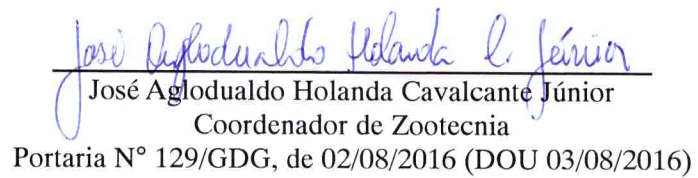 José Aglodualdo Holanda C. Júnior
José Aglodualdo Holanda Cavalcante Júnior
Coordenador de Zootecnia
Portaria N° 129/GDG, de 02/08/2016 (DOU 03/08/2016)